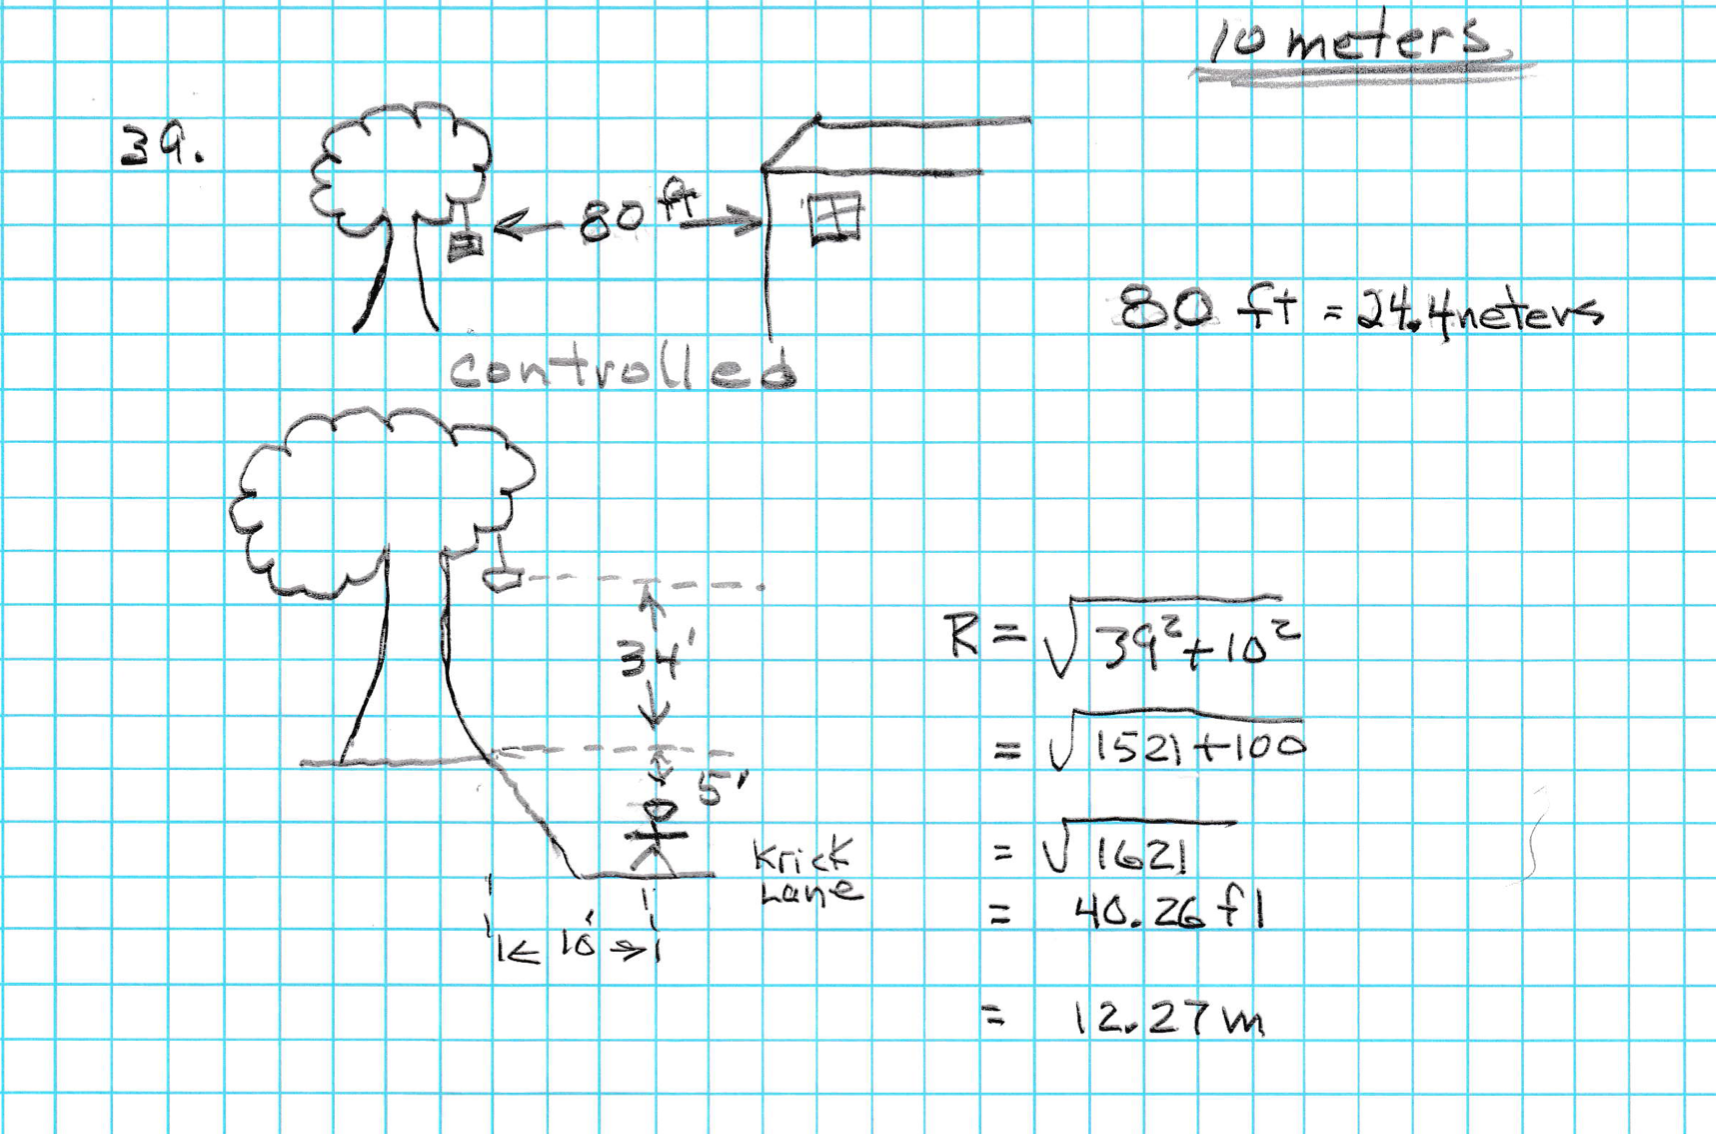 10 meters
39.
80 ft
80 ft = 24.4 meters
controlled
34'
5'
Krick
Lane
10'
R = √39²+10²
= √1521+100
= √1621
= 40.26 ft
= 12.27 m